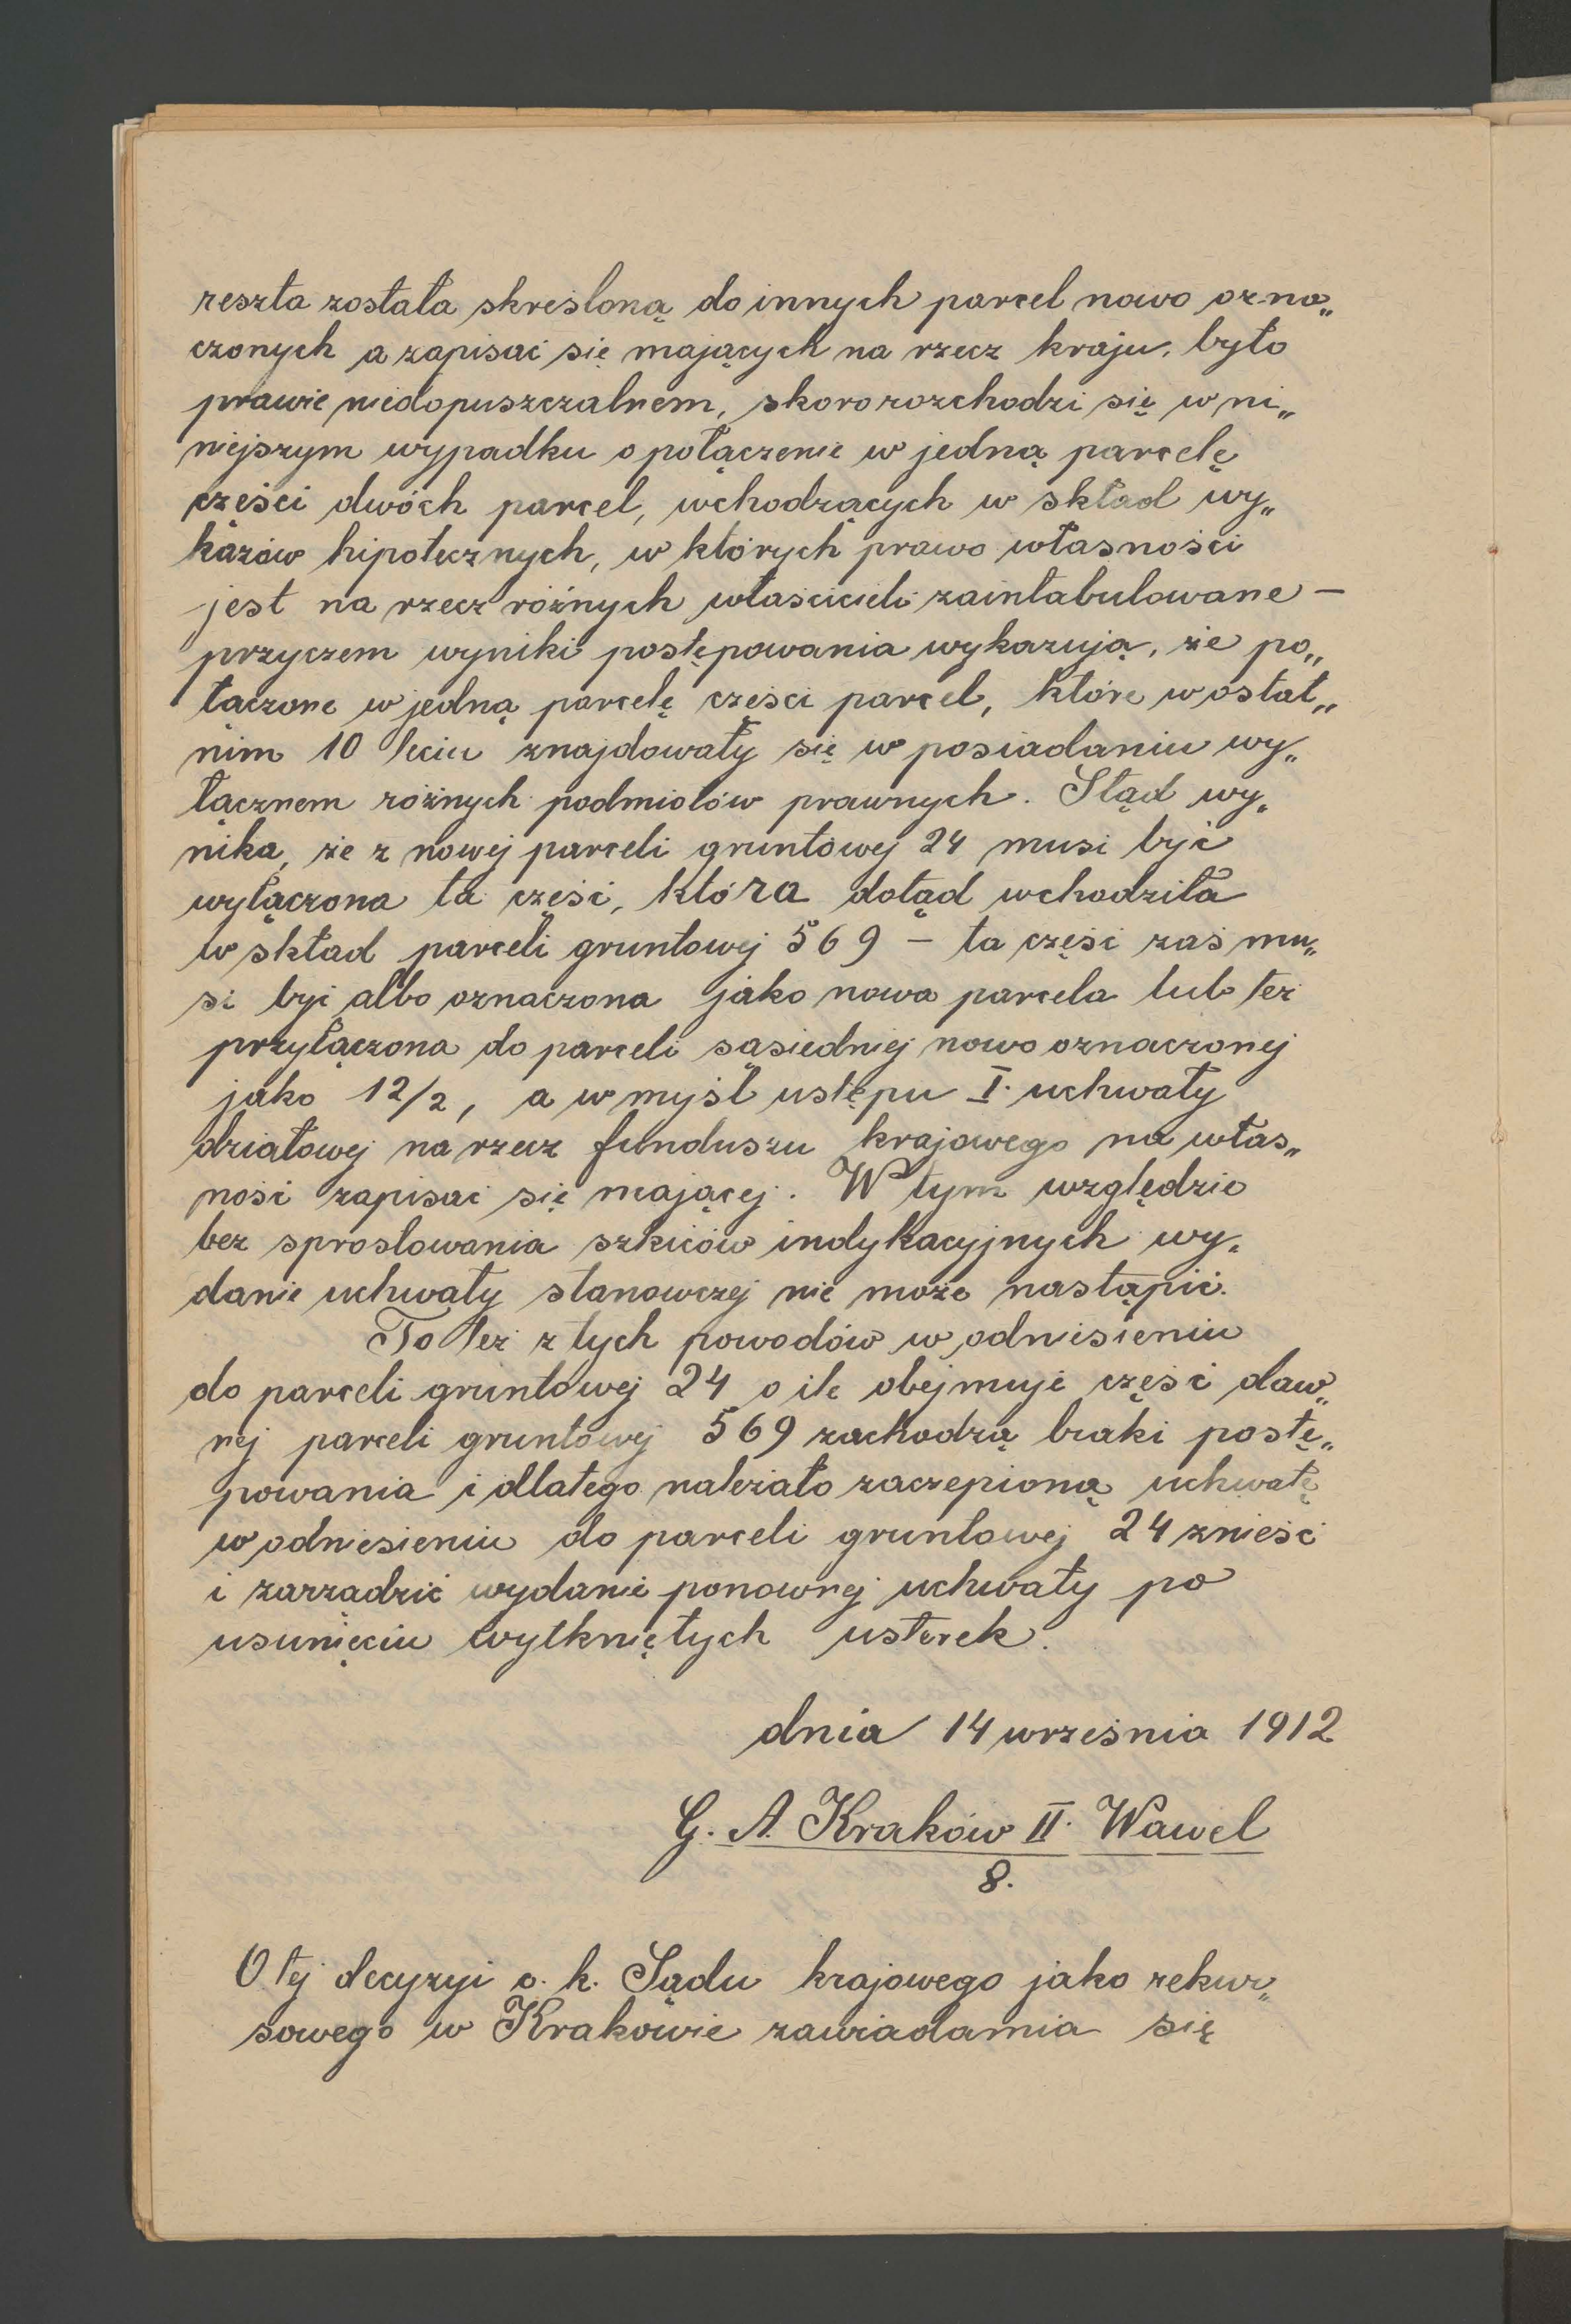 reszta została skreśloną do innych parcel nowo ozna„
czonych a zapisać się mających na rzecz kraju, było
prawie niedopuszczalnem, skoro rozchodzi się w ni„
niejszym wypadku o połączenie w jedną parcelę
części dwóch parcel, wchodzących w skład wy„
kazów hipotecznych, w których prawo własności
jest na rzecz różnych właścicieli zaintabulowane –
przyczem wyniki postępowania wykazują, że po„
łączone w jedną parcelę części parcel, które w ostat„
nim 10 leciu znajdowały się w posiadaniu wy„
łącznem różnych podmiotów prawnych. Stąd wy„
nika, że z nowej parceli gruntowej 24 musi być
wyłączona ta część, która dotąd wchodziła
w skład parceli gruntowej 569 – ta część zaś mu„
si być albo oznaczona jako nowa parcela lub też
przyłączona do parceli sąsiedniej nowo oznaczonej
jako 12/2, a w myśl ustępu I. uchwały
działowej na rzecz funduszu krajowego na włas„
ność zapisać się mającej. W tym względzie
bez sprostowania szkiców indykacyjnych wy„
danie uchwały stanowczej nie może nastąpić.
To też z tych powodów w odniesieniu
do parceli gruntowej 24 o ile obejmuje część daw„
nej parceli gruntowej 569 zachodzą braki postę„
powania i dlatego należało zaczepioną uchwałę
w odniesieniu do parceli gruntowej 24 znieść
i zarządzić wydanie ponownej uchwały po
usunięciu wytkniętych usterek.
dnia 14 września 1912
G. A. Kraków II. Wawel
8.
O tej decyzyi c. k. Sądu krajowego jako rekur„
sowego w Krakowie zawiadamia się